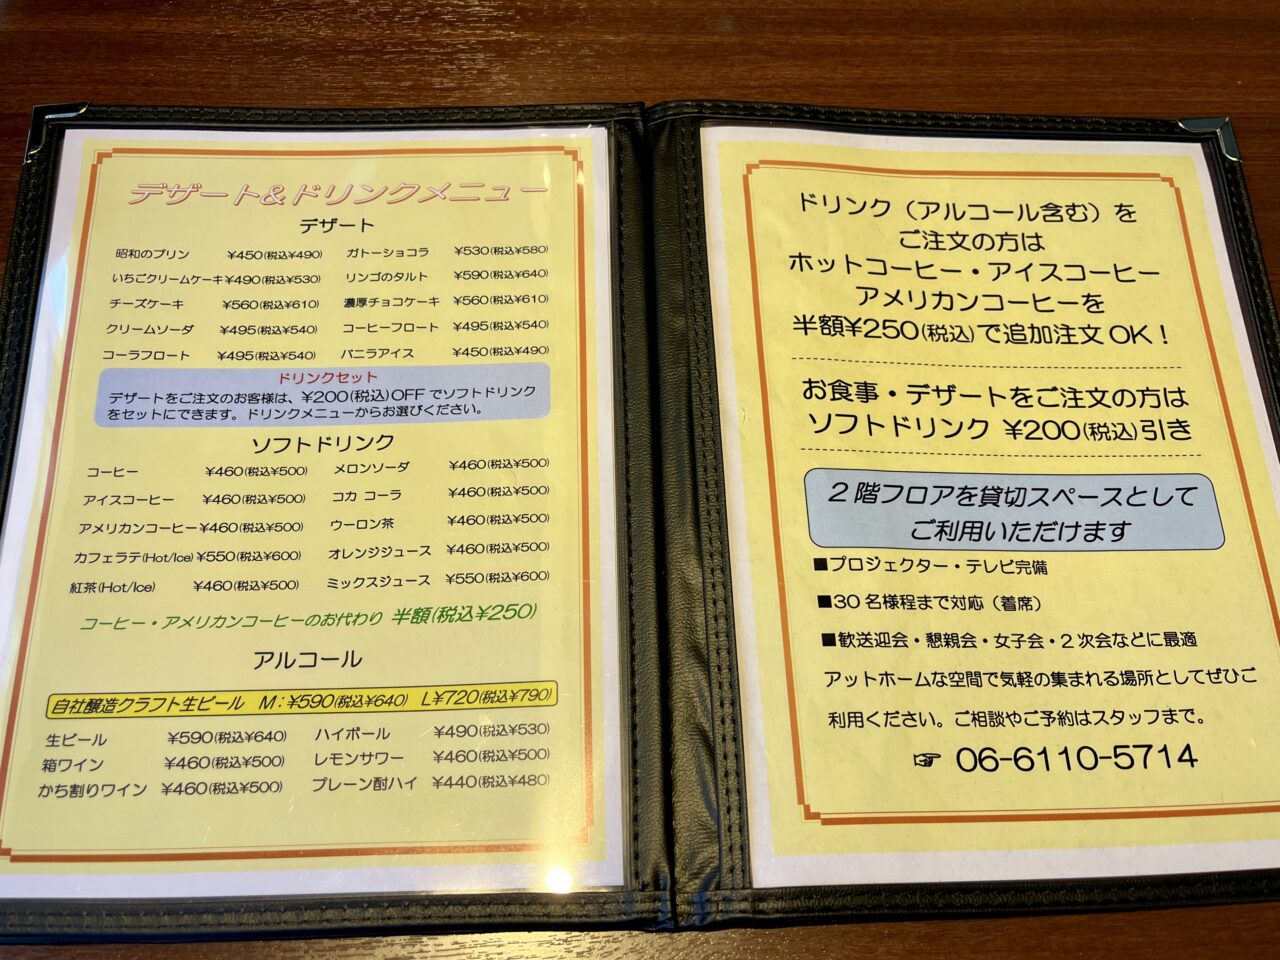 デザート&ドリンクメニュー
デザート
昭和のプリン ¥450(税込¥490) ガトーショコラ ¥530(税込¥580)
いちごクリームケーキ¥490(税込¥530) リンゴのタルト ¥590(税込¥640)
チーズケーキ ¥560(税込¥610) 濃厚チョコケーキ ¥560(税込¥610)
クリームソーダ ¥495(税込¥540) コーヒーフロート ¥495(税込¥540)
コーラフロート ¥495(税込¥540) バニラアイス ¥450(税込¥490)
ドリンクセット
デザートをご注文のお客様は、¥200(税込)OFFでソフトドリンク
をセットにできます。ドリンクメニューからお選びください。
ソフトドリンク
コーヒー ¥460(税込¥500) メロンソーダ ¥460(税込¥500)
アイスコーヒー ¥460(税込¥500) コカ コーラ ¥460(税込¥500)
アメリカンコーヒー¥460(税込¥500) ウーロン茶 ¥460(税込¥500)
カフェラテ(Hot/Ice)¥550(税込¥600) オレンジジュース ¥460(税込¥500)
紅茶(Hot/Ice) ¥460(税込¥500) ミックスジュース ¥550(税込¥600)
コーヒー・アメリカンコーヒーのお代わり 半額(税込¥250)
アルコール
自社醸造クラフト生ビール M:¥590(税込¥640) L¥720(税込¥790)
生ビール ¥590(税込¥640) ハイボール ¥490(税込¥530)
箱ワイン ¥460(税込¥500) レモンサワー ¥460(税込¥500)
かち割りワイン ¥460(税込¥500) プレーン酎ハイ ¥440(税込¥480)
ドリンク(アルコール含む)を
ご注文の方は
ホットコーヒー・アイスコーヒー
アメリカンコーヒーを
半額¥250(税込)で追加注文OK!
お食事・デザートをご注文の方は
ソフトドリンク ¥200(税込)引き
2階フロアを貸切スペースとして
ご利用いただけます
■プロジェクター・テレビ完備
■30名様程まで対応(着席)
■歓送迎会・懇親会・女子会・2次会などに最適
アットホームな空間で気軽の集まれる場所としてぜひご
利用ください。ご相談やご予約はスタッフまで。
☞ 06-6110-5714